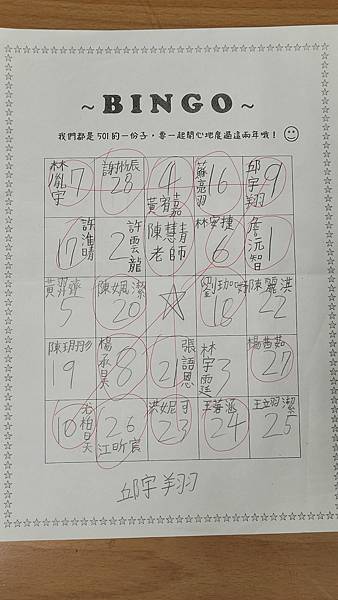 ~BINGO~
我們都是501的一份子，要一起開心地度過這兩年哦！
林胤宇 7 謝 28 4 黃宥嘉 蘇亮羽 16 邱宇翔 9
17 許淮晴 2 許雲龍 陳慧青老師 林宥捷 6 詹沅智 1
黃羿齊 5 陳姵潔 20 劉珈妤 18 陳麗淇 22
陳玥彤 19 楊承昊 8 21 張語恩 林宇霆 3 楊茜茹 27
10 尤柏昊 26 江昕宸 洪妮可 23 王莘涵 24 王立 潔 25
邱宇翔